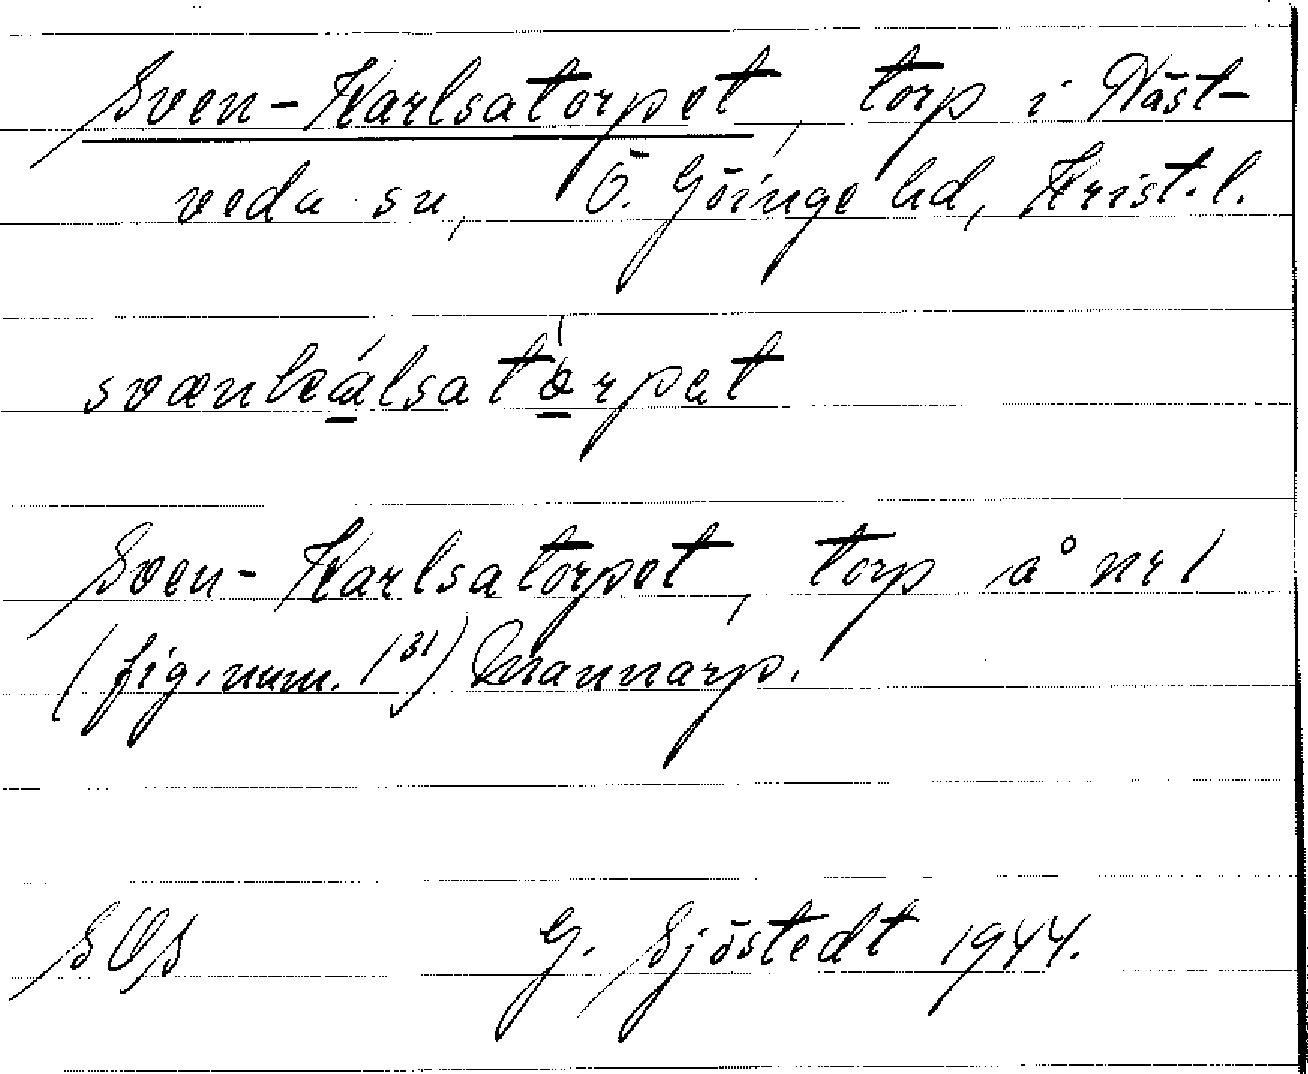 Sven-Karlsatorpet, torp i Näst-
veda sn, Ö. Göinge hd, Krist. l.
Sven-Karlsatorpet, torp å nr 1
(fig. num. 1³¹) Mannarp.
SOS G. Sjöstedt 1944.